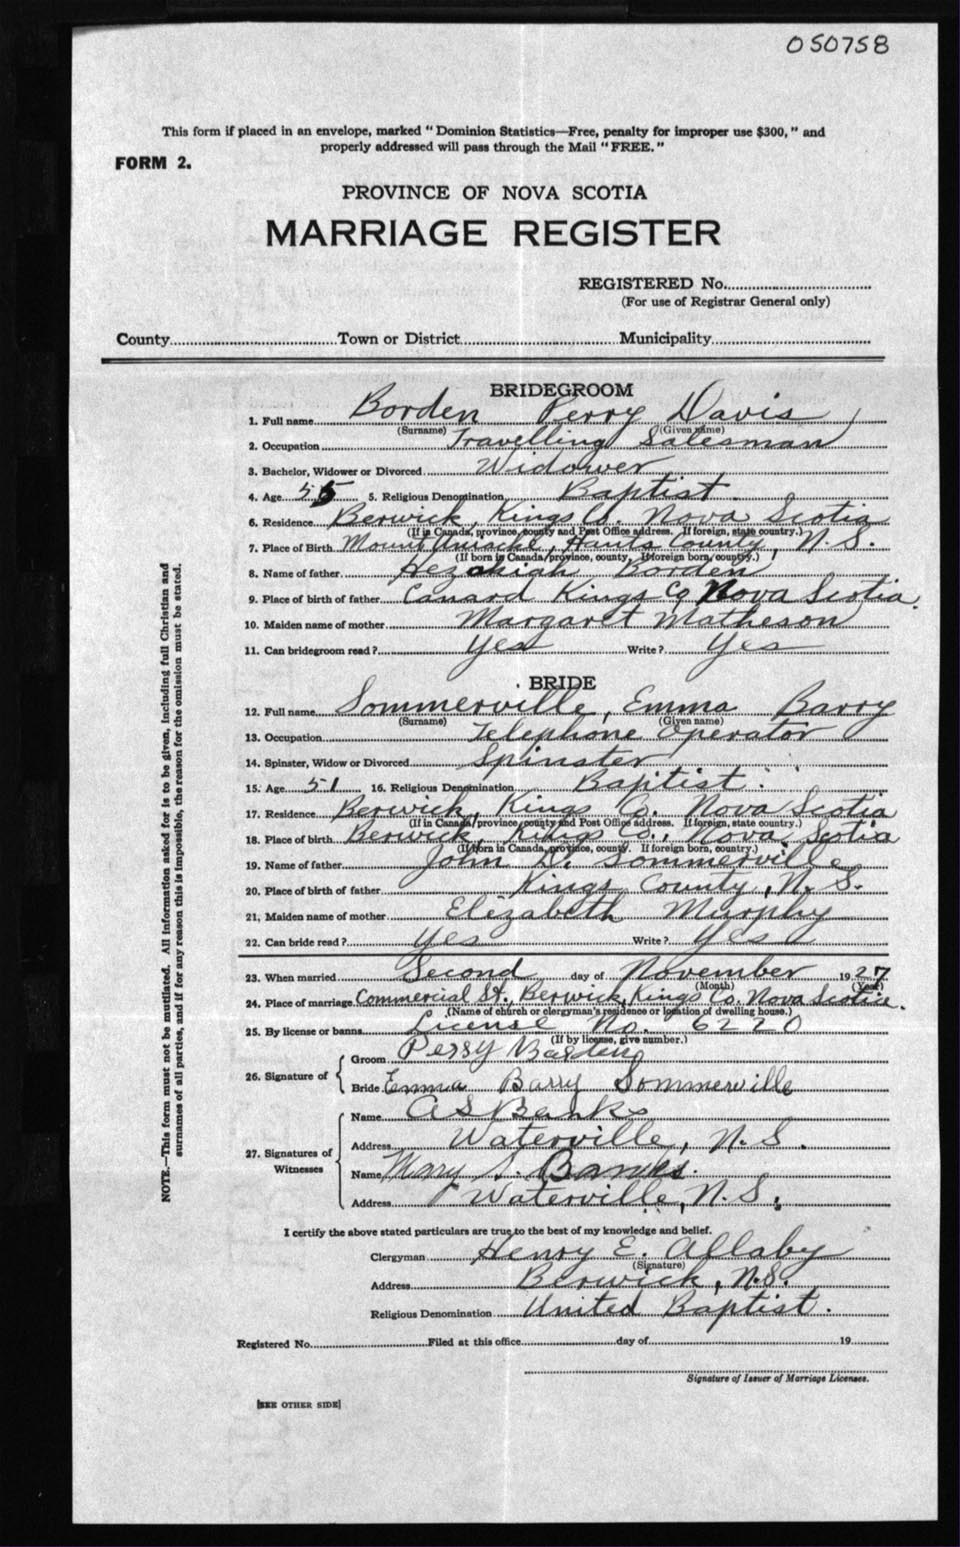 050758
This form if placed in an envelope, marked "Dominion Statistics—Free, penalty for improper use $300," and
properly addressed will pass through the Mail "FREE."
FORM 2.
PROVINCE OF NOVA SCOTIA
MARRIAGE REGISTER
REGISTERED No.
(For use of Registrar General only)
County Town or District Municipality
BRIDEGROOM
1. Full name Borden Perry Davis
(Surname) (Given name)
2. Occupation Travelling Salesman
3. Bachelor, Widower or Divorced Widower
4. Age 55 5. Religious Denomination Baptist
6. Residence Berwick, Kings Co. Nova Scotia
(If in Canada, province, county and Post Office address. If foreign, state country.)
7. Place of Birth Mount Uniacke, Hants County, N.S.
(If born in Canada, province, county, If foreign born, country.)
8. Name of father Hezekiah Borden
9. Place of birth of father Canard Kings Co Nova Scotia.
10. Maiden name of mother Margaret Matheson
11. Can bridegroom read? Yes Write? Yes
BRIDE
12. Full name Sommerville, Emma Barry
(Surname) (Given name)
13. Occupation Telephone Operator
14. Spinster, Widow or Divorced Spinster
15. Age 51 16. Religious Denomination Baptist.
17. Residence Berwick, Kings Co. Nova Scotia
(If in Canada, province, county and Post Office address. If foreign, state country.)
18. Place of birth Berwick, Kings Co., Nova Scotia
(If born in Canada, province, county. If foreign born, country.)
19. Name of father John D. Sommerville
20. Place of birth of father Kings County, N.S.
21. Maiden name of mother Elizabeth Murphy
22. Can bride read? Yes Write? Yes
23. When married Second day of November 1927
(Month) (Year)
24. Place of marriage Commercial St., Berwick, Kings Co. Nova Scotia.
(Name of church or clergyman's residence or location of dwelling house.)
25. By license or banns License No. 6220
(If by license, give number.)
26. Signature of
Groom Perry Borden
Bride Emma Barry Sommerville
27. Signatures of Witnesses
Name A S Banks
Address Waterville, N.S.
Name Mary S. Banks.
Address Waterville, N.S.
I certify the above stated particulars are true to the best of my knowledge and belief.
Clergyman Henry E. Allaby
(Signature)
Address Berwick, N.S.
Religious Denomination United Baptist.
Registered No. Filed at this office day of 19
Signature of Issuer of Marriage Licenses.
[SEE OTHER SIDE]
NOTE.—This form must not be mutilated. All information asked for is to be given, including full Christian and
surnames of all parties, and if for any reason this is impossible, the reason for the omission must be stated.